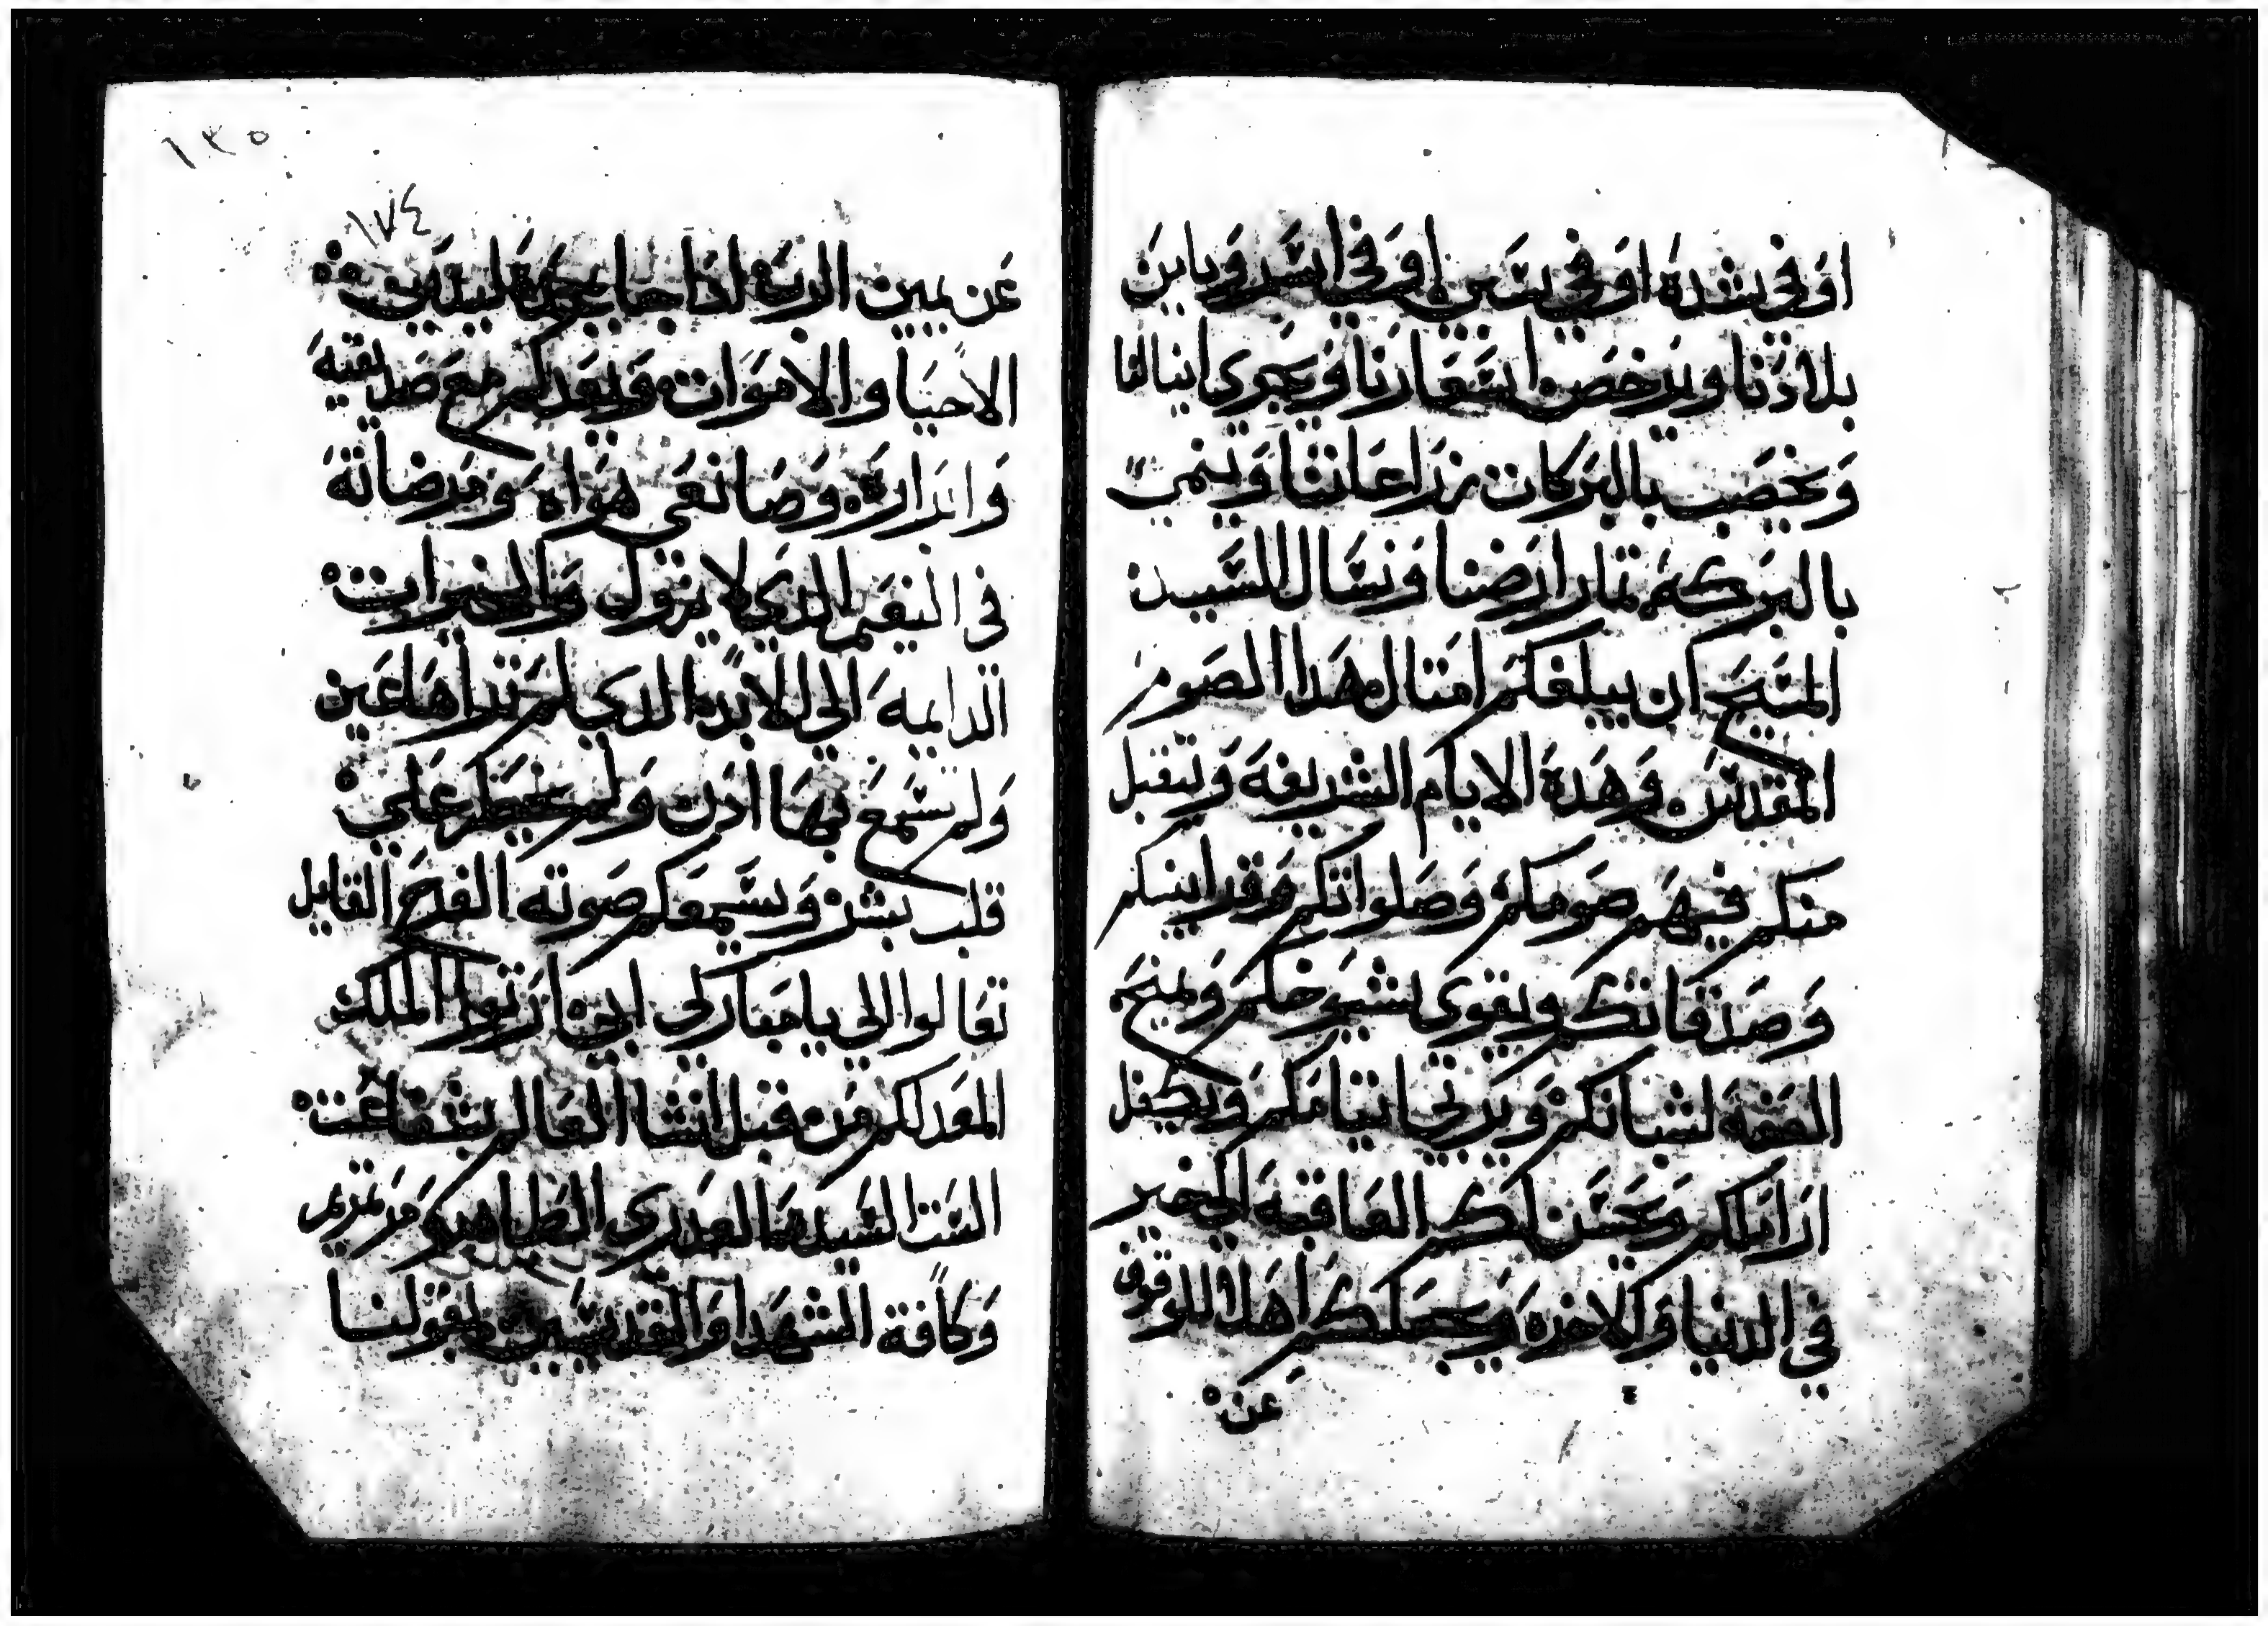 اوَفي شدة اوَ في يبس اوَ في ايسر وَباين
بلادنا ويرخص اسعارنا وَيجري انيالنا
وَيخصب بالبركات زراعاتنا وَينمي
بالبركة تمار ارضنا وَنسال السيد
المسيح ان يبلغكم امتال هدا الصوم
المقدس وَهده الايام الشريفة وَيتقبل
منكم فيهم صومكم وَصلواتكم وَقرابينكم
وَصدقاتكم ويقوي شيوخكم وَيمنح
العفة لشبانكم وَيربي ايتامكم وَيكفل
اراملكم وَيحسن لكم العاقبة الي خير
في الدنيا وَالاخرة وَيجعلكم اهلا للوقوف
عن
١٣٥
١٧٤
عن يمين الرب ادا جا بمجده ليدين
الاحيا والاموات وَيعدكم مع صديقيه
وَابراره وَصانعي هواه وَمرضاته
في النعيم الدي لا يزول وَالخيرات
الدايمة الي الابد الدي لم تراها عين
وَلم تسمع بها ادن وَلم يخطر علي
قلب بشر وَيسمعكم صوته الفرح القايل
تعالوا الي يا مباركي ابي ارتوا الملك
المعد لكم من قبل انشا العالم بشفاعة
الست السيدة العدري الطاهرة مرتمريم
وَكافة الشهدا وَالقديسين بقولنا